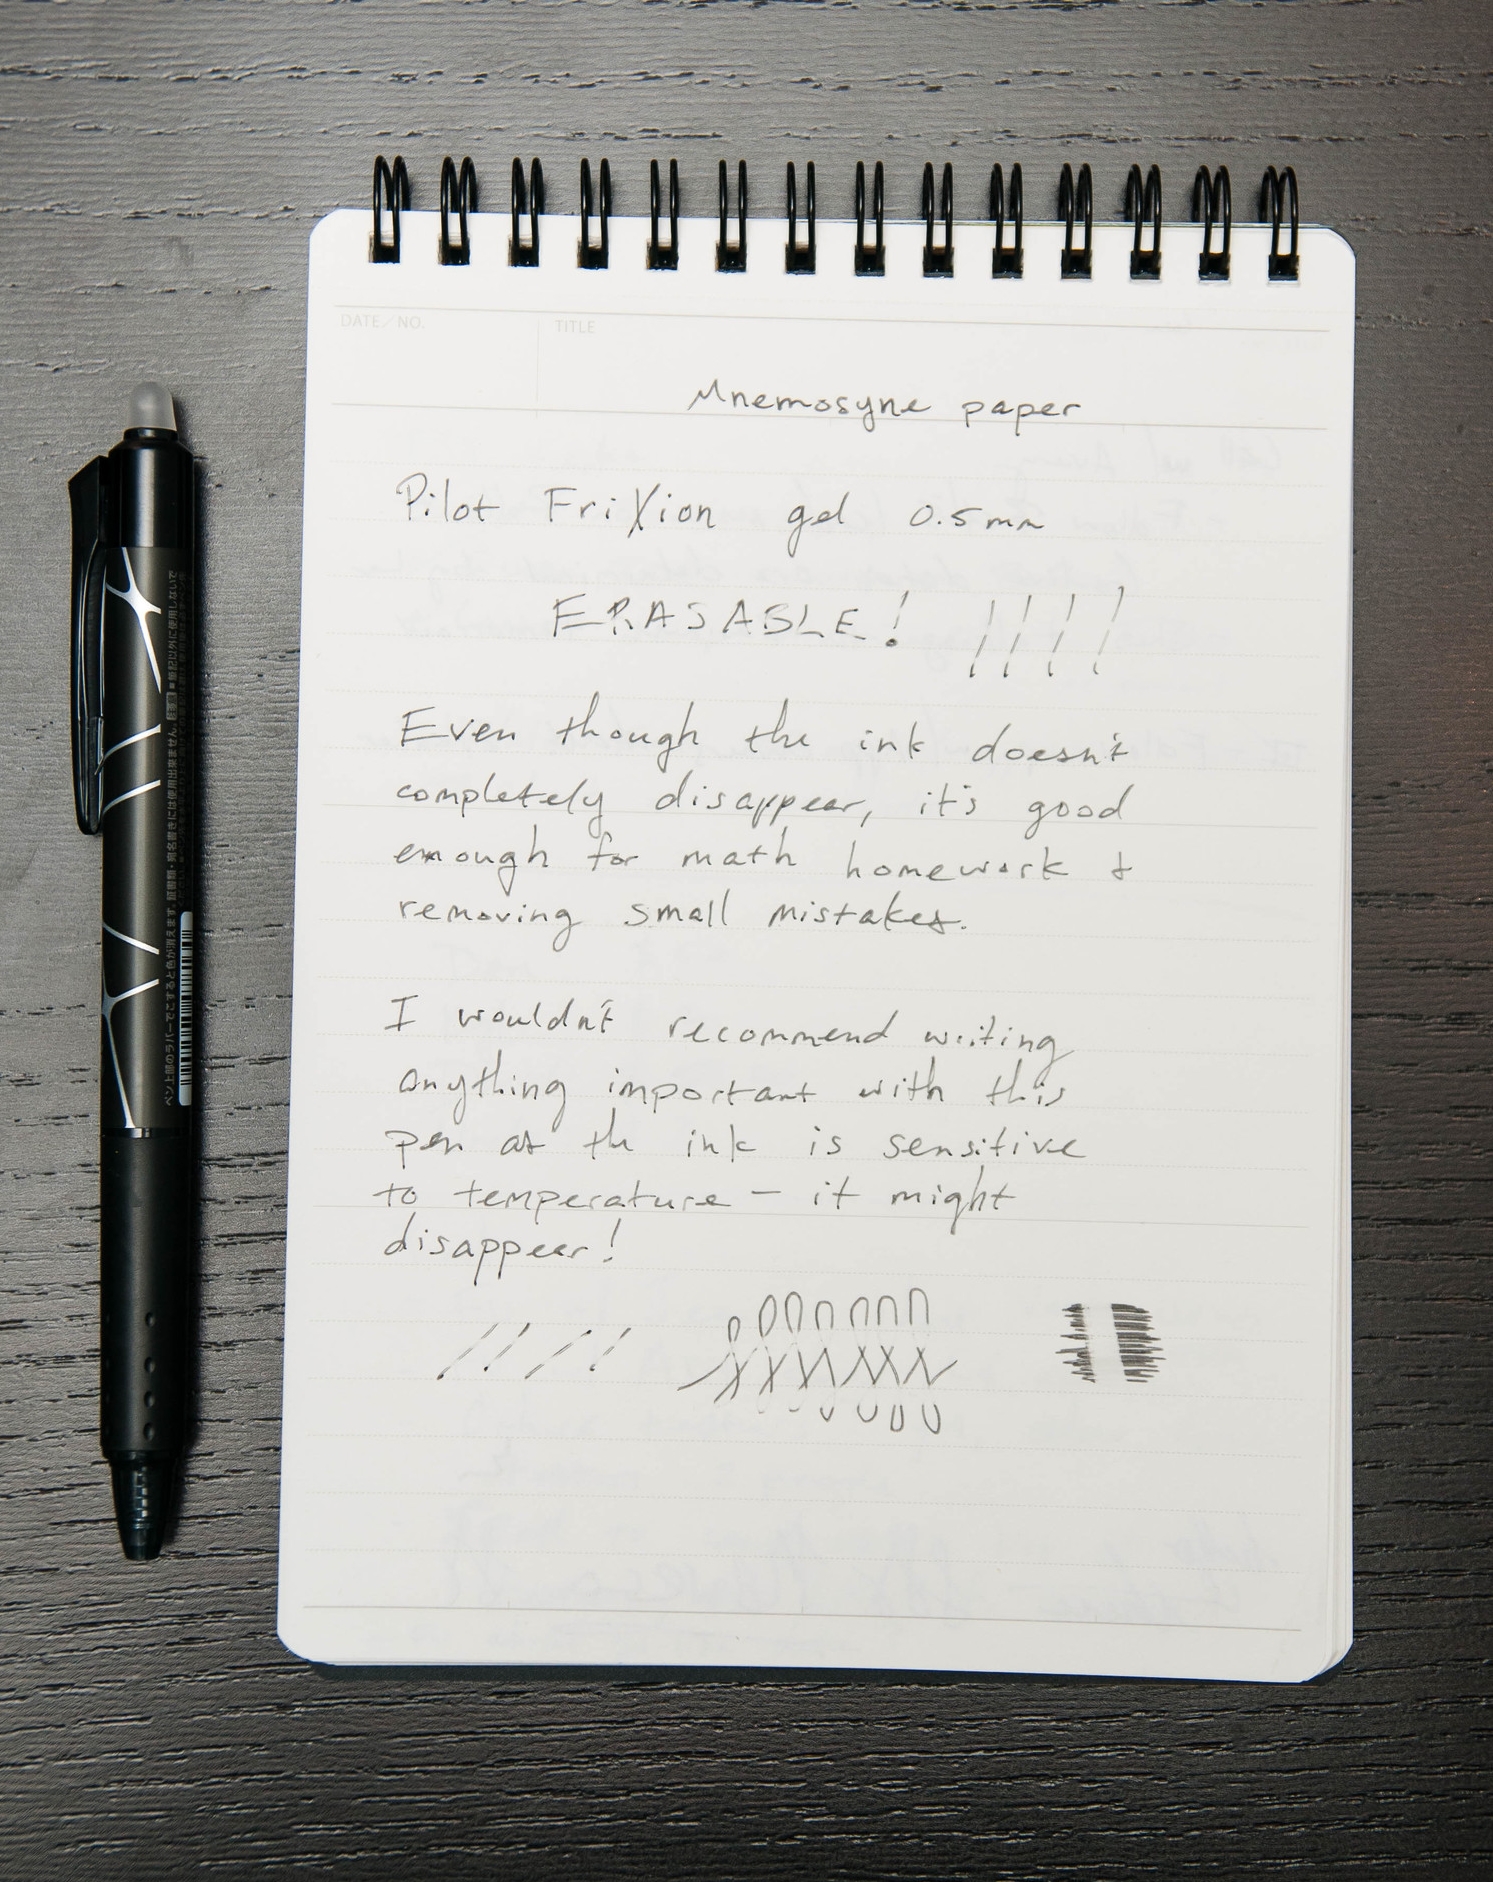 DATE/NO.
TITLE
Mnemosyne paper
Pilot FriXion gel 0.5mm
ERASABLE!
Even though the ink doesn't
completely disappear, it's good
enough for math homework &
removing small mistakes.
I wouldn't recommend writing
anything important with this
pen as the ink is sensitive
to temperature – it might
disappear!
ペン上部のラバーでこすると色が消えます。証書類・宛名書きには使用出来ません。注意 ■筆記以外に使用しないで